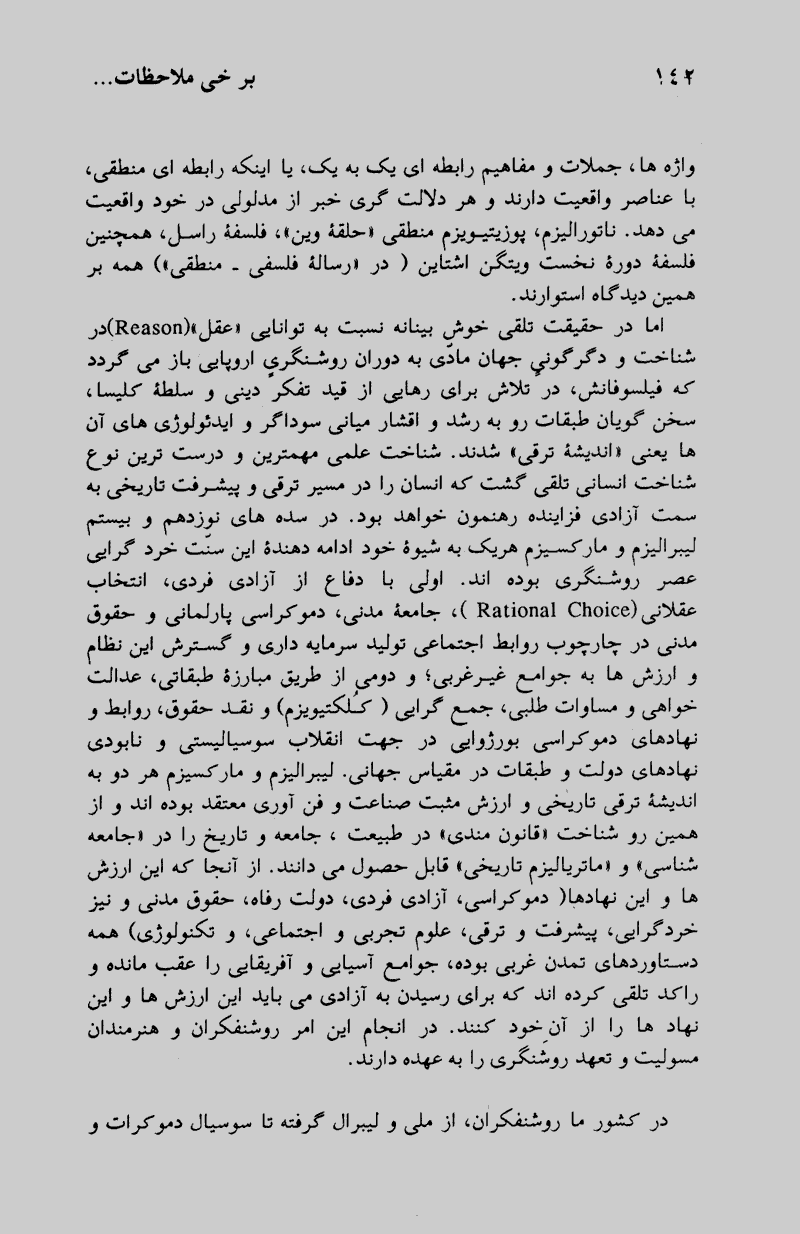 ۱٤۲
بر خی ملاحظات...
واژه ها، جملات و مفاهیم رابطه ای یک به یک، یا اینکه رابطه ای منطقی،
با عناصر واقعیت دارند و هر دلالت گری خبر از مدلولی در خود واقعیت
می دهد. ناتورالیزم، پوزیتیویزم منطقی «حلقۀ وین»، فلسفۀ راسل، همچنین
فلسفۀ دورۀ نخست ویتگن اشتاین ( در «رسالۀ فلسفی ـ منطقی») همه بر
همین دیدگاه استوارند.
اما در حقیقت تلقی خوش بینانه نسبت به توانایی «عقل»(Reason)در
شناخت و دگرگونیِ جهان مادّی به دوران روشنگریِ اروپایی باز می گردد
که فیلسوفانش، در تلاش برای رهایی از قید تفکر دینی و سلطۀ کلیسا،
سخن گویان طبقات رو به رشد و اقشار میانی سوداگر و ایدئولوژی های آن
ها یعنی «اندیشۀ ترقی» شدند. شناخت علمی مهمترین و درست ترین نوع
شناخت انسانی تلقی گشت که انسان را در مسیر ترقی و پیشرفت تاریخی به
سمت آزادی فزاینده رهنمون خواهد بود. در سده های نوزدهم و بیستم
لیبرالیزم و مارکسیزم هریک به شیوۀ خود ادامه دهندۀ این سنّت خرد گرایی
عصر روشنگری بوده اند. اولی با دفاع از آزادی فردی، انتخاب
عقلانی(Rational Choice )، جامعۀ مدنی، دموکراسی پارلمانی و حقوق
مدنی در چارچوب روابط اجتماعی تولید سرمایه داری و گسترش این نظام
و ارزش ها به جوامع غیرغربی؛ و دومی از طریق مبارزۀ طبقاتی، عدالت
خواهی و مساوات طلبی، جمع گرایی ( کُلکتیویزم) و نقد حقوق، روابط و
نهادهای دموکراسی بورژوایی در جهت انقلاب سوسیالیستی و نابودی
نهادهای دولت و طبقات در مقیاس جهانی. لیبرالیزم و مارکسیزم هر دو به
اندیشۀ ترقی تاریخی و ارزش مثبت صناعت و فن آوری معتقد بوده اند و از
همین رو شناخت «قانون مندی» در طبیعت ، جامعه و تاریخ را در «جامعه
شناسی» و «ماتریالیزم تاریخی» قابل حصول می دانند. از آنجا که این ارزش
ها و این نهادها( دموکراسی، آزادی فردی، دولت رفاه، حقوق مدنی و نیز
خردگرایی، پیشرفت و ترقی، علوم تجربی و اجتماعی، و تکنولوژی) همه
دستاوردهای تمدن غربی بوده، جوامع آسیایی و آفریقایی را عقب مانده و
راکد تلقی کرده اند که برای رسیدن به آزادی می باید این ارزش ها و این
نهاد ها را از آنِ خود کنند. در انجام این امر روشنفکران و هنرمندان
مسولیت و تعهد روشنگری را به عهده دارند.
در کشور ما روشنفکران، از ملی و لیبرال گرفته تا سوسیال دموکرات و